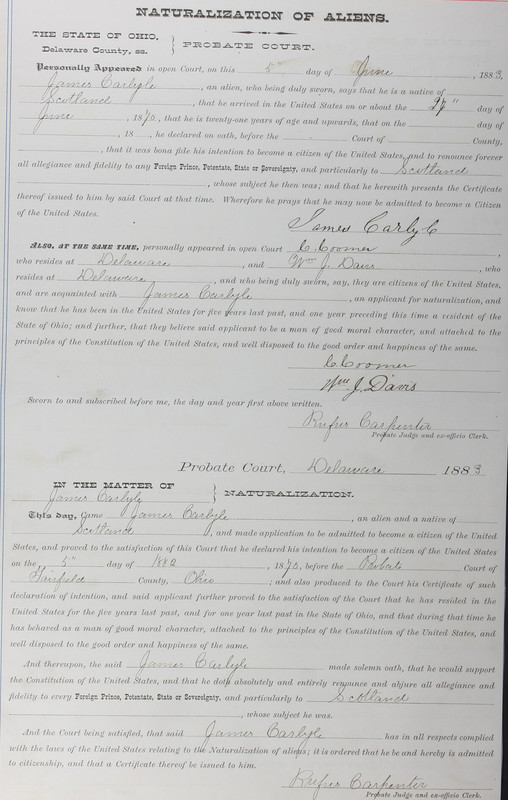 NATURALIZATION OF ALIENS.
THE STATE OF OHIO,
Delaware County, ss.
PROBATE COURT.
Personally Appeared in open Court, on this 5" day of June, 1883,
James Carlyle, an alien, who being duly sworn, says that he is a native of
Scotland, that he arrived in the United States on or about the 27" day of
June, 1870, that he is twenty-one years of age and upwards, that on the day of
, 18 , he declared on oath, before the Court of County,
, that it was bona fide his intention to become a citizen of the United States, and to renounce forever
all allegiance and fidelity to any Foreign Prince, Potentate, State or Sovereignty, and particularly to Scotland
, whose subject he then was; and that he herewith presents the Certificate
thereof issued to him by said Court at that time. Wherefore he prays that he may now be admitted to become a Citizen
of the United States.
James Carlyle
ALSO, AT THE SAME TIME, personally appeared in open Court C. Coomer,
who resides at Delaware, and Wm J. Davis, who
resides at Delaware, and who being duly sworn, say, they are citizens of the United States,
and are acquainted with James Carlyle, an applicant for naturalization, and
know that he has been in the United States for five years last past, and one year preceding this time a resident of the
State of Ohio; and further, that they believe said applicant to be a man of good moral character, and attached to the
principles of the Constitution of the United States, and well disposed to the good order and happiness of the same.
C. Coomer
Wm J. Davis
Sworn to and subscribed before me, the day and year first above written.
Rufus Carpenter
Probate Judge and ex-officio Clerk.
Probate Court, Delaware 1883
IN THE MATTER OF
James Carlyle
NATURALIZATION.
This day, Came James Carlyle, an alien and a native of
Scotland, and made application to be admitted to become a citizen of the United
States, and proved to the satisfaction of this Court that he declared his intention to become a citizen of the United States
on the 5" day of 1880, 1870, before the Probate Court of
Fairfield County, Ohio; and also produced to the Court his Certificate of such
declaration of intention, and said applicant further proved to the satisfaction of the Court that he has resided in the
United States for the five years last past, and for one year last past in the State of Ohio, and that during that time he
has behaved as a man of good moral character, attached to the principles of the Constitution of the United States, and
well disposed to the good order and happiness of the same.
And thereupon, the said James Carlyle made solemn oath, that he would support
the Constitution of the United States, and that he doth absolutely and entirely renounce and abjure all allegiance and
fidelity to every Foreign Prince, Potentate, State or Sovereignty, and particularly to Scotland
, whose subject he was.
And the Court being satisfied, that said James Carlyle has in all respects complied
with the laws of the United States relating to the Naturalization of aliens; it is ordered that he be and hereby is admitted
to citizenship, and that a Certificate thereof be issued to him.
Rufus Carpenter
Probate Judge and ex-officio Clerk.